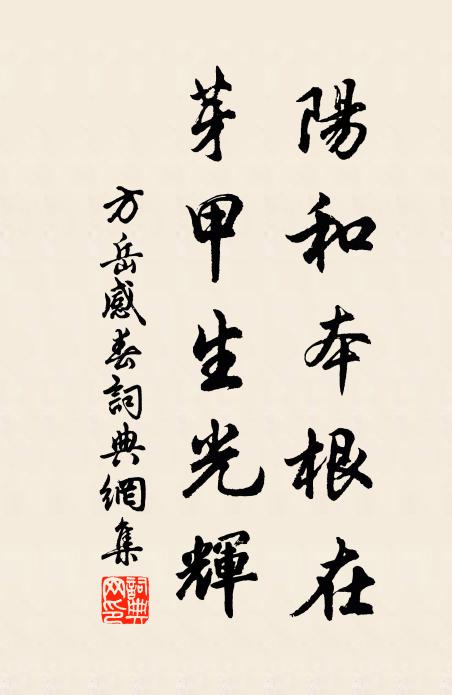 陽和本根在
芽甲生光輝
方岳感春詞典網集
詞典网印